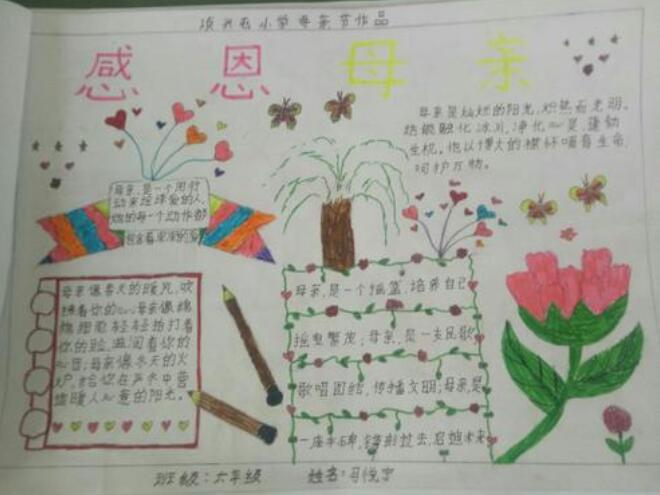 小学母亲节作品
感恩母亲
母亲是灿烂的阳光,炽热而光明。
她能融化冰川,净化心灵,蓬勃
生机。他以博大的襟怀哺育生命,
呵护万物。
母亲,是一个用行
动来诠释爱的人,
她的每一个动作都
包含着深深的爱
母亲像春天的暖风,吹
拂着你的心;母亲像绵
绵细雨轻轻拍打着
你的脸,滋润着你的
心田;母亲像冬天的火
炉,给你在严冬中营
造暖人心意的阳光。
母亲,是一个摇篮,培养自己
繁茂;母亲,是一支民歌
歌唱团结,传播文明;母亲,是
一座丰碑,镌刻过去,启迪未来
班级:六年级 姓名:马悦宁